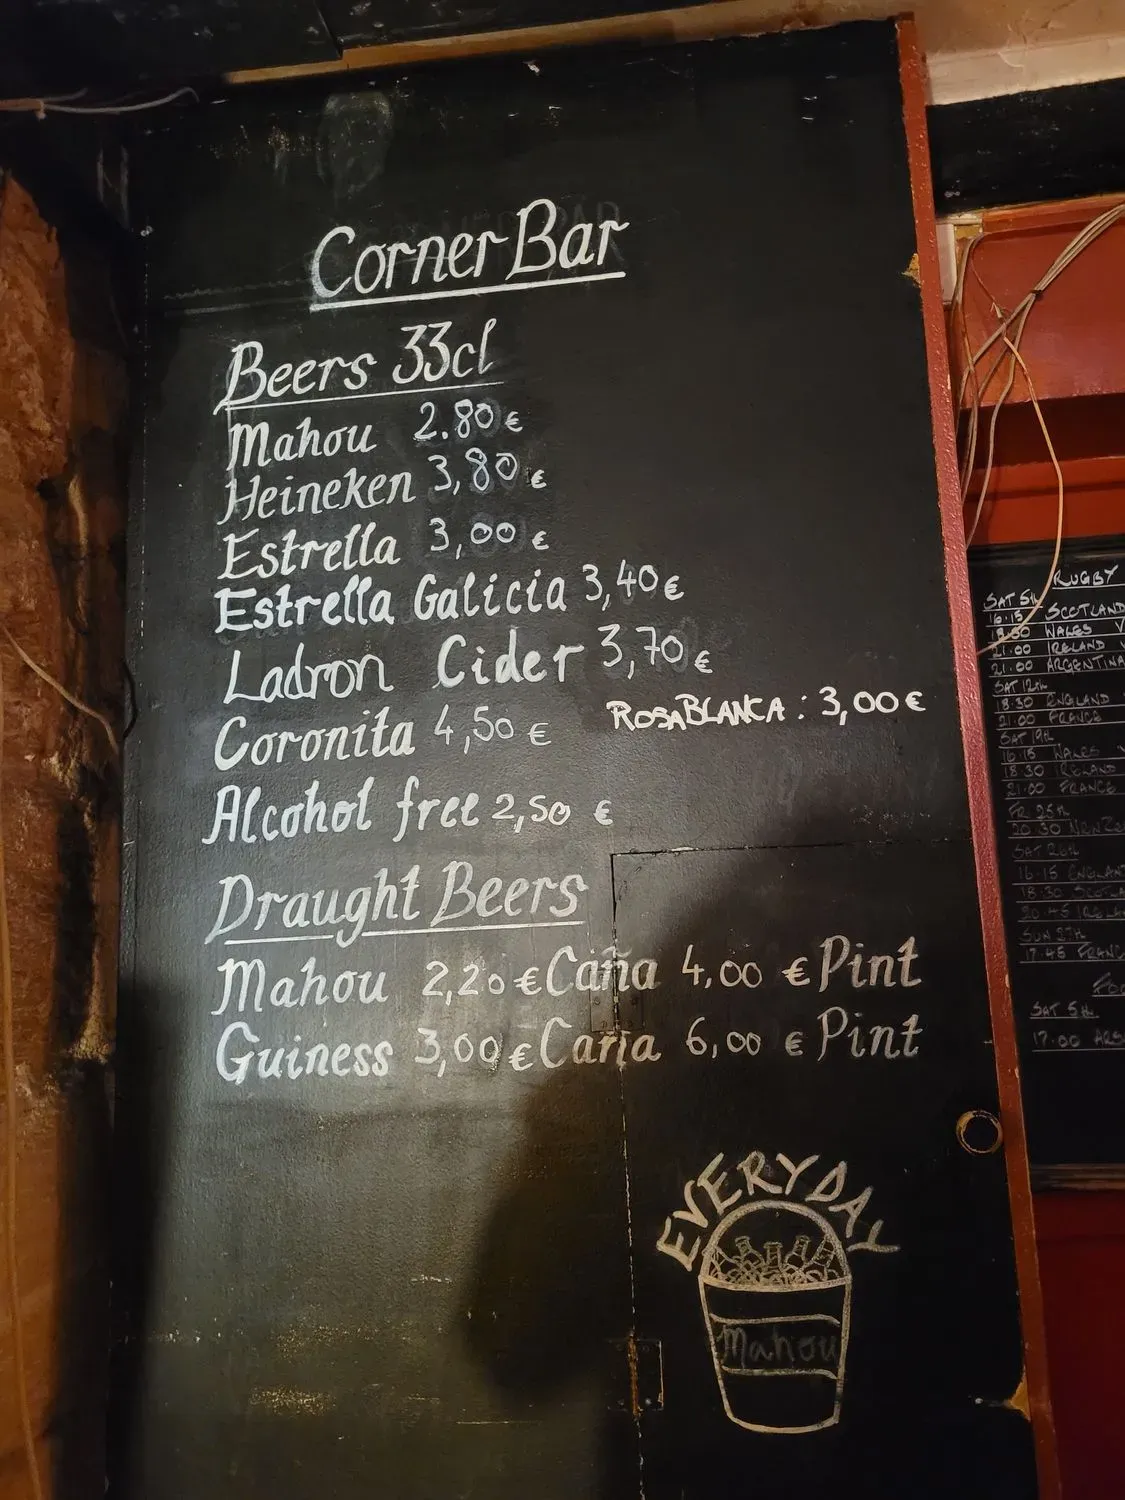 Corner Bar
Beers 33cl
Mahou 2.80 €
Heineken 3,80 €
Estrella 3,00 €
Estrella Galicia 3,40 €
Ladron Cider 3,70 €
RosaBlanca : 3,00 €
Coronita 4,50 €
Alcohol free 2,50 €
Draught Beers
Mahou 2,20 € Caña 4,00 € Pint
Guiness 3,00 € Caña 6,00 € Pint
EVERYDAY
Mahou
RUGBY
SAT 5th
16:15 SCOTLAND
18:30 WALES V
21:00 IRELAND V
21:00 ARGENTINA
SAT 12th
18:30 ENGLAND
21:00 FRANCE
SAT 19th
16:15 WALES V
18:30 IRELAND
21:00 FRANCE
FR 25th
20:30
SAT 26th
16:15 ENGLAN
18:30 SCOTLA
20:45 IRELA
SUN 27th
17:45 FRANC
FOO
SAT 5th
17:00 ARS